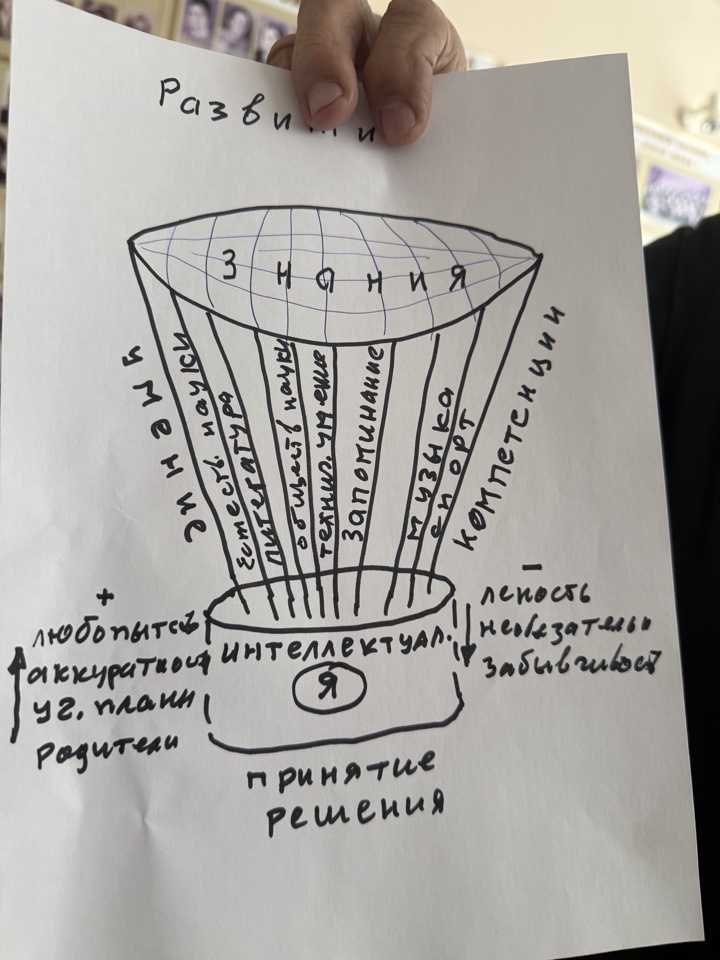 Знания
умение
Естеств. науки
литература
обществ науки
технич. умение
Запоминание
музыка
спорт
компетенции
+
любопытст
аккуратност
родители
интеллектуал.
Я
-
леность
необязательн
забывчивост
принятие
решения